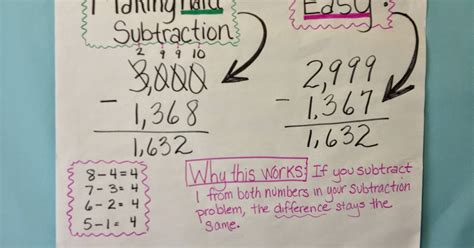 Making hard
Subtraction
Easy!
2 9 9 10
3,000
- 1,368
1,632
2,999
- 1,367
1,632
8-4=4
7-3=4
6-2=4
5-1=4
Why this works: If you subtract
1 from both numbers in your subtraction
problem, the difference stays the
same.